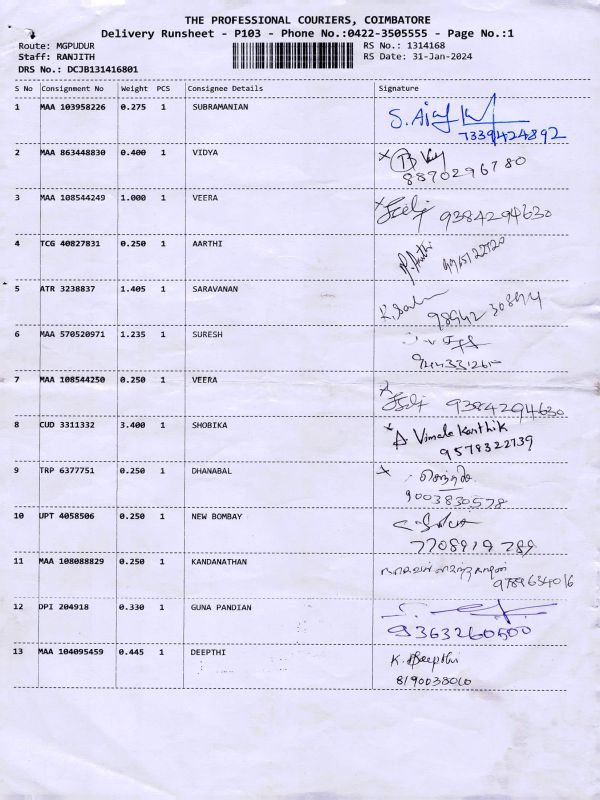 THE PROFESSIONAL COURIERS, COIMBATORE
Delivery Runsheet - P103 - Phone No.:0422-3505555 - Page No.:1
Route: MGPUDUR RS No.: 1314168
Staff: RANJITH RS Date: 31-Jan-2024
DRS No.: DCJB131416801
S No Consignment No Weight PCS Consignee Details Signature
1 MAA 103958226 0.275 1 SUBRAMANIAN
7339424892
2 MAA 863448830 0.400 1 VIDYA
8870296780
3 MAA 108544249 1.000 1 VEERA
9384294630
4 TCG 40827831 0.250 1 AARTHI
5 ATR 3238837 1.405 1 SARAVANAN
98942 30894
6 MAA 570520971 1.235 1 SURESH
7 MAA 108544250 0.250 1 VEERA
9384294630
8 CUD 3311332 3.400 1 SHOBIKA
A Vimale Karthik
9578322739
9 TRP 6377751 0.250 1 DHANABAL
9003830578
10 UPT 4058506 0.250 1 NEW BOMBAY
7708919 789
11 MAA 108088829 0.250 1 KANDANATHAN
9789634016
12 DPI 204918 0.330 1 GUNA PANDIAN
9363260500
13 MAA 104095459 0.445 1 DEEPTHI
K. Deepthi
8190038010